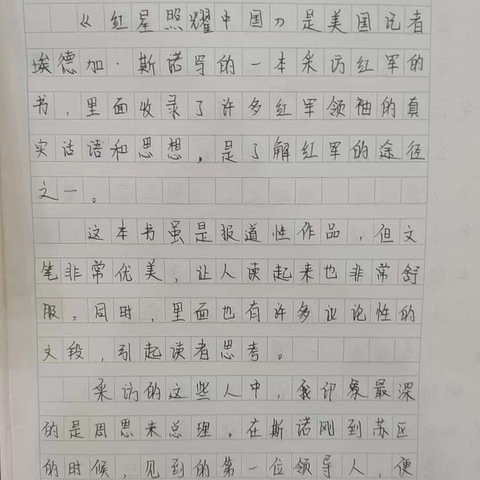 《红星照耀中国》是美国记者
埃德加·斯诺写的一本采访红军的
书，里面收录了许多红军领袖的真
实话语和思想，是了解红军的途径
之一。
这本书虽是报道性作品，但文
笔非常优美，让人读起来也非常舒
服。同时，里面也有许多议论性的
文段，引起读者思考。
采访的这些人中，我印象最深
的是周恩来总理。在斯诺刚到苏区
的时候，见到的第一位领导人，便